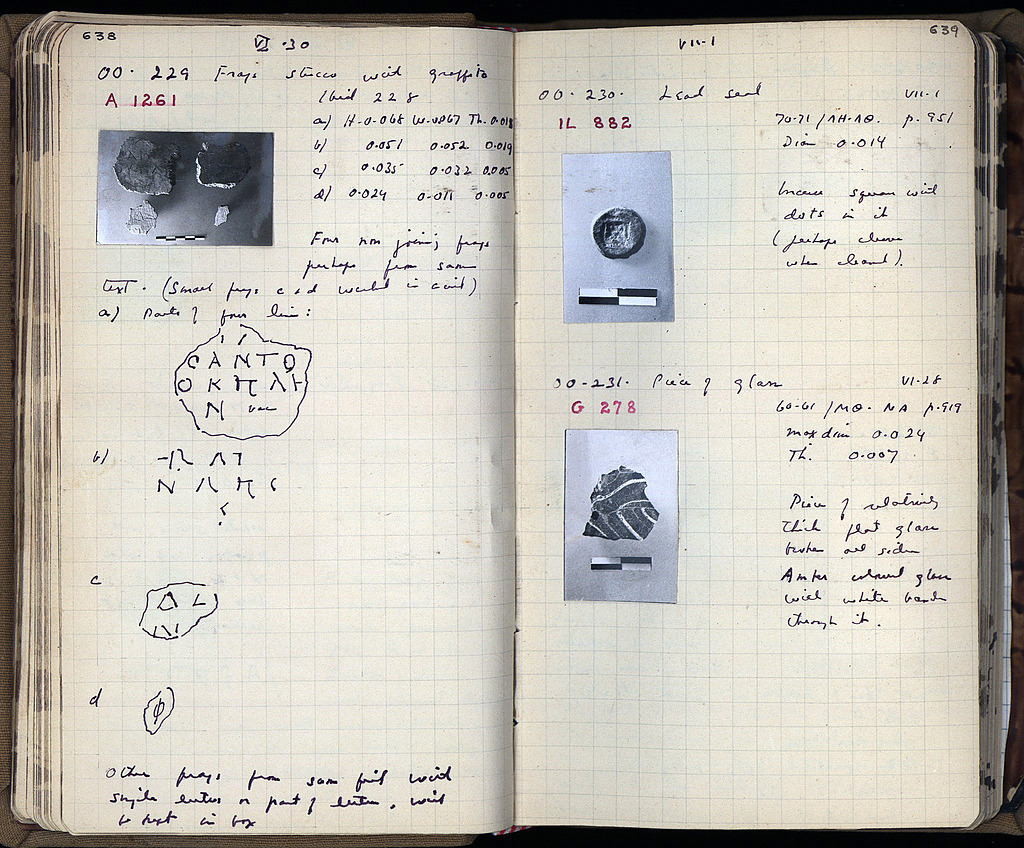 638
VI .30
OO. 229 Frags stucco with graffito
A 1261
Ibid 228
a) H-0.068 W-0.067 Th. 0.018
b) 0.051 0.052 0.019
c) 0.035 0.032 0.005
d) 0.024 0.011 0.005
Four non joining frags
perhaps from same
text. (Small frags c & d washed in acid)
a) Parts of four lines:
CANTO
N vac
b)
c
d
Other frags from same fill with
single letters or part of letters, with
in box
639
VII-1
OO. 230. Lead seal VII-1
IL 882
70-71/ΛH-ΛΘ. p. 951
Diam 0.014
Incuse square with
dots in it
(perhaps clearer
when cleaned).
OO-231. Piece of glass VI-28
G 278
60-61/ΜΘ. ΝΑ p.919
max dim 0.024
Th. 0.007
Piece of relatively
thick flat glass
broken all sides
Amber coloured glass
with white bands
through it.